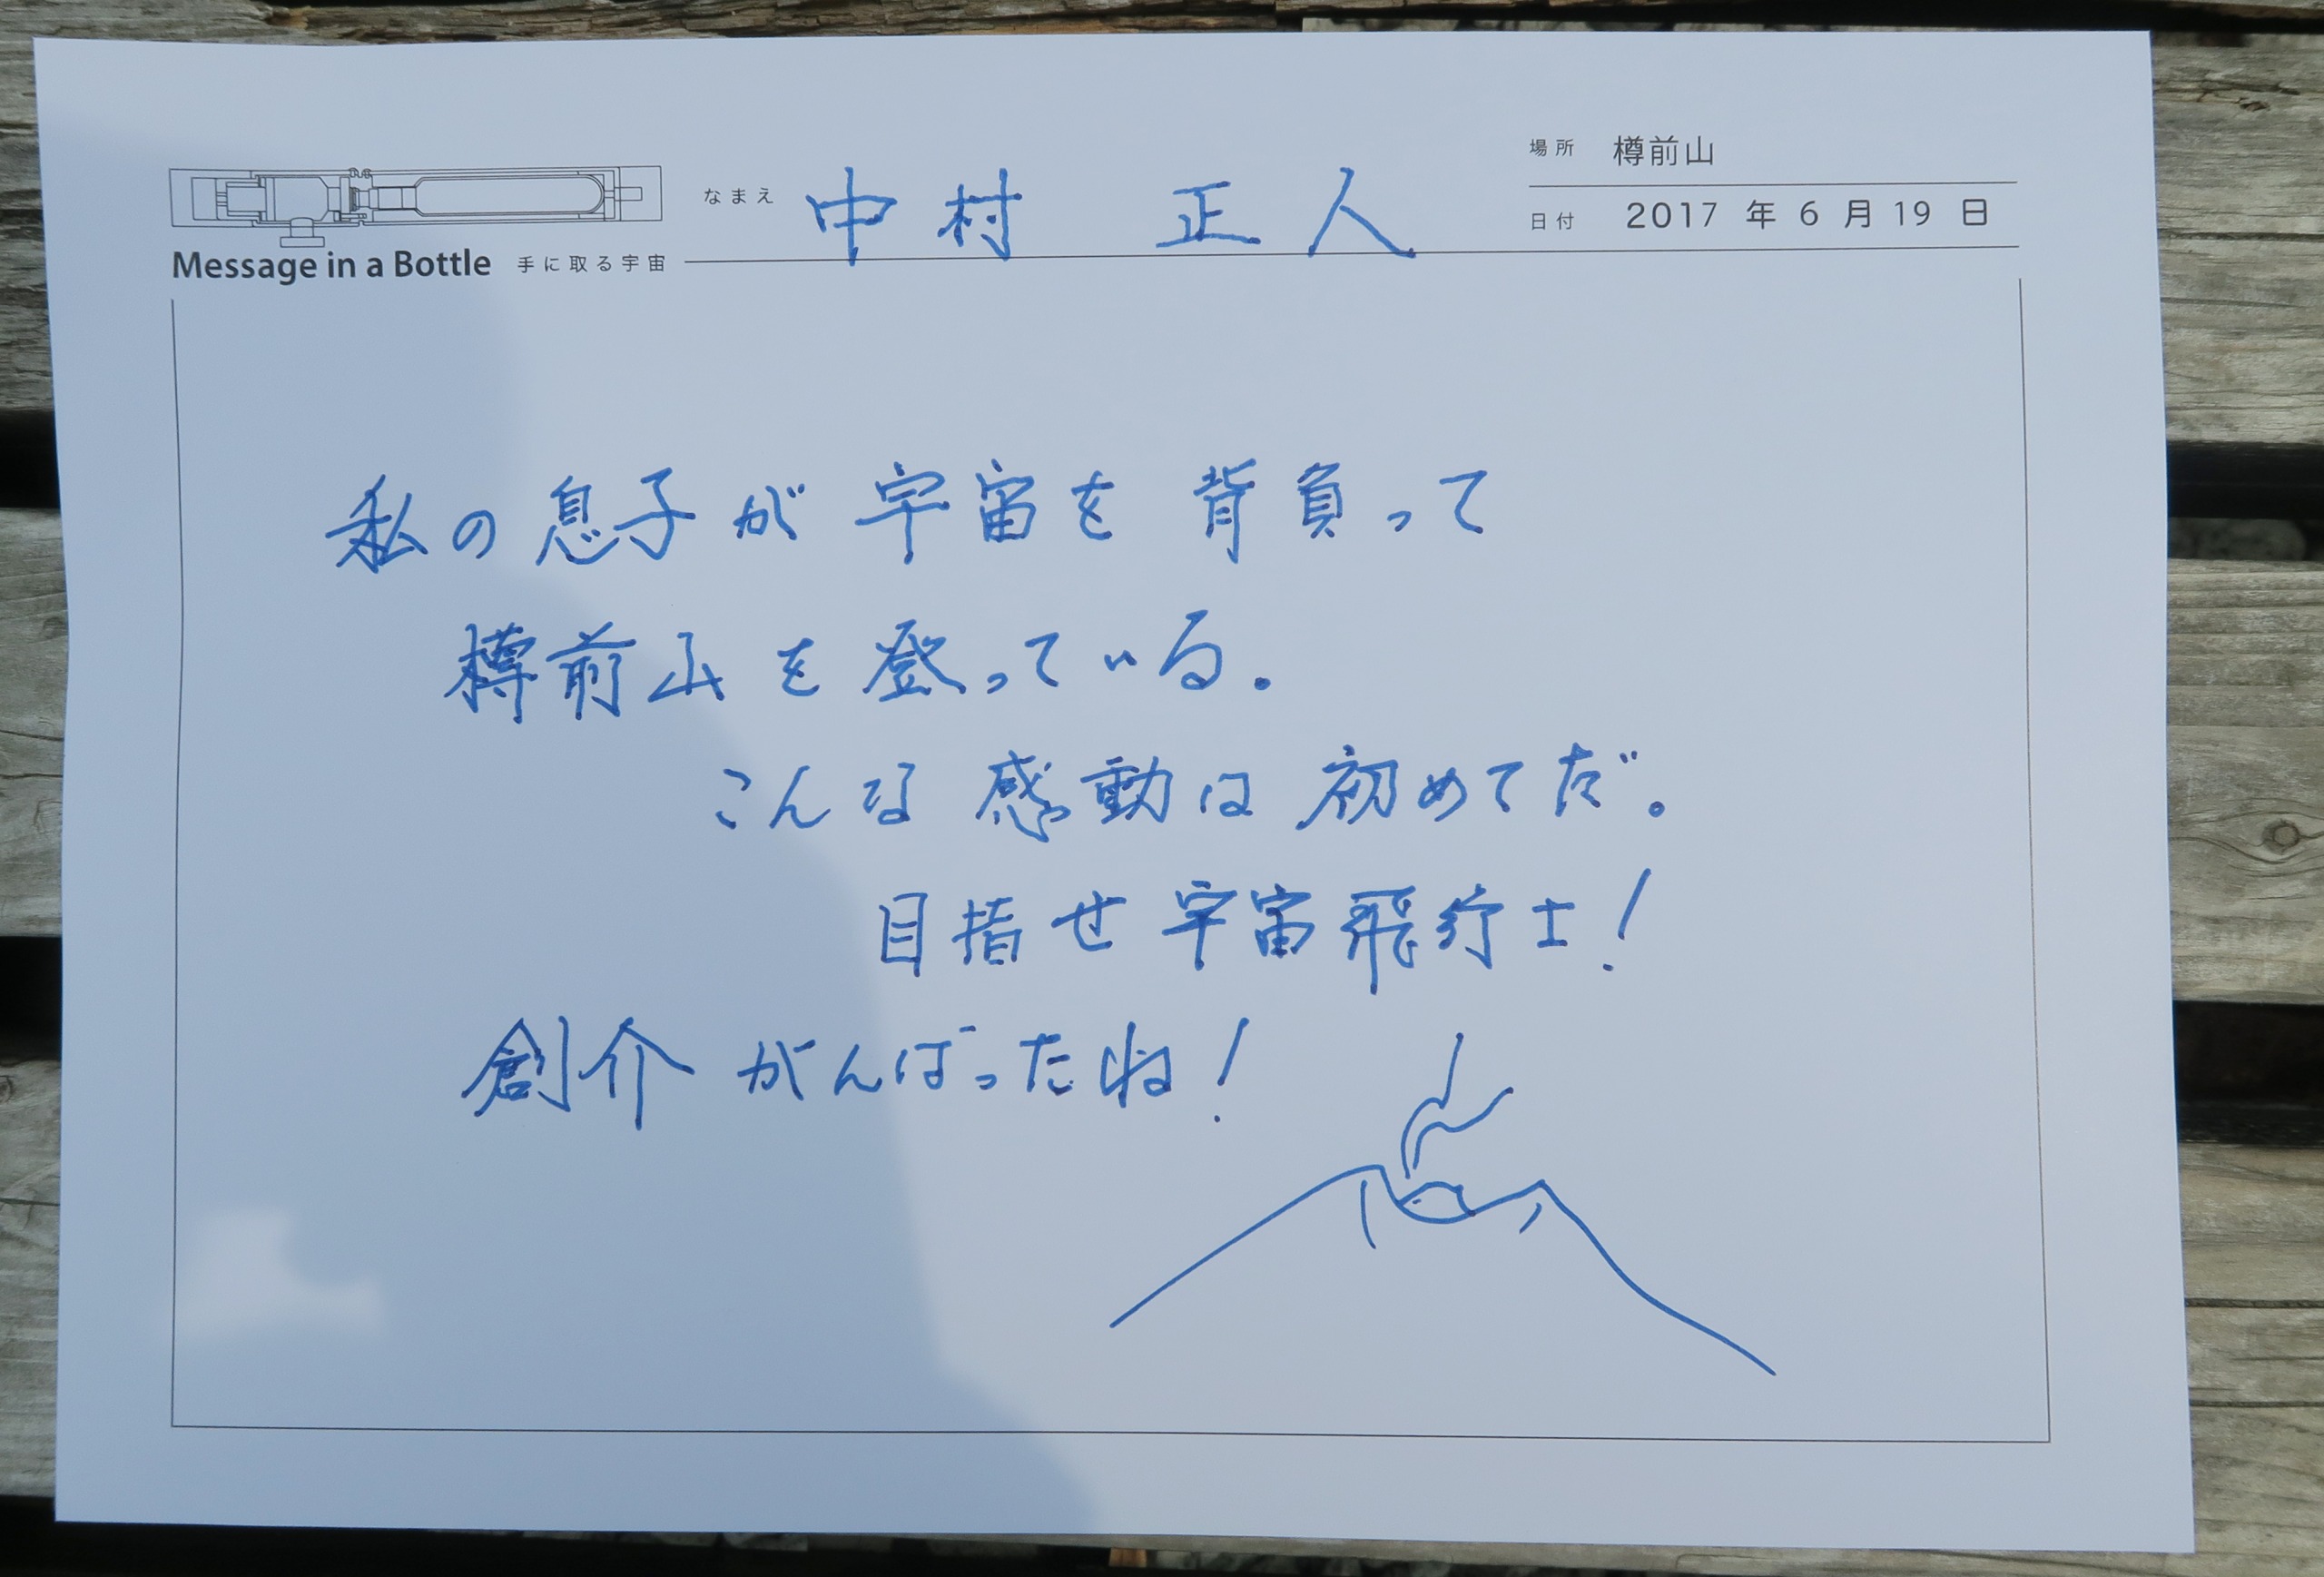 Message in a Bottle 手に取る宇宙
なまえ 中村 正人
場所 樽前山
日付 2017 年 6 月 19 日
私の息子が宇宙を背負って
樽前山を登っている.
こんな感動は初めてだ。
目指せ宇宙飛行士!
創介がんばったね!